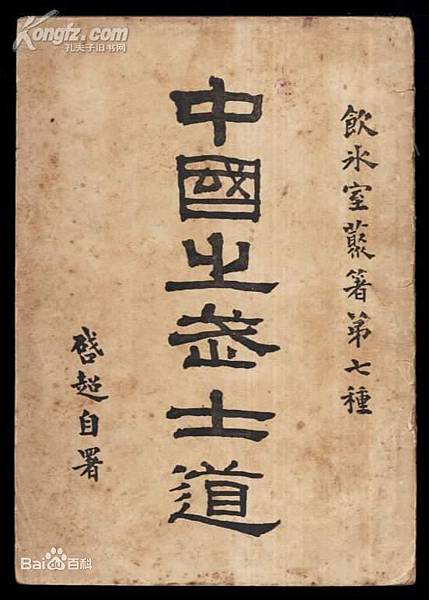 Kongfz.com
孔夫子旧书网
飲氷室叢箸第七種
中國之武士道
啓超自署
Bai百科